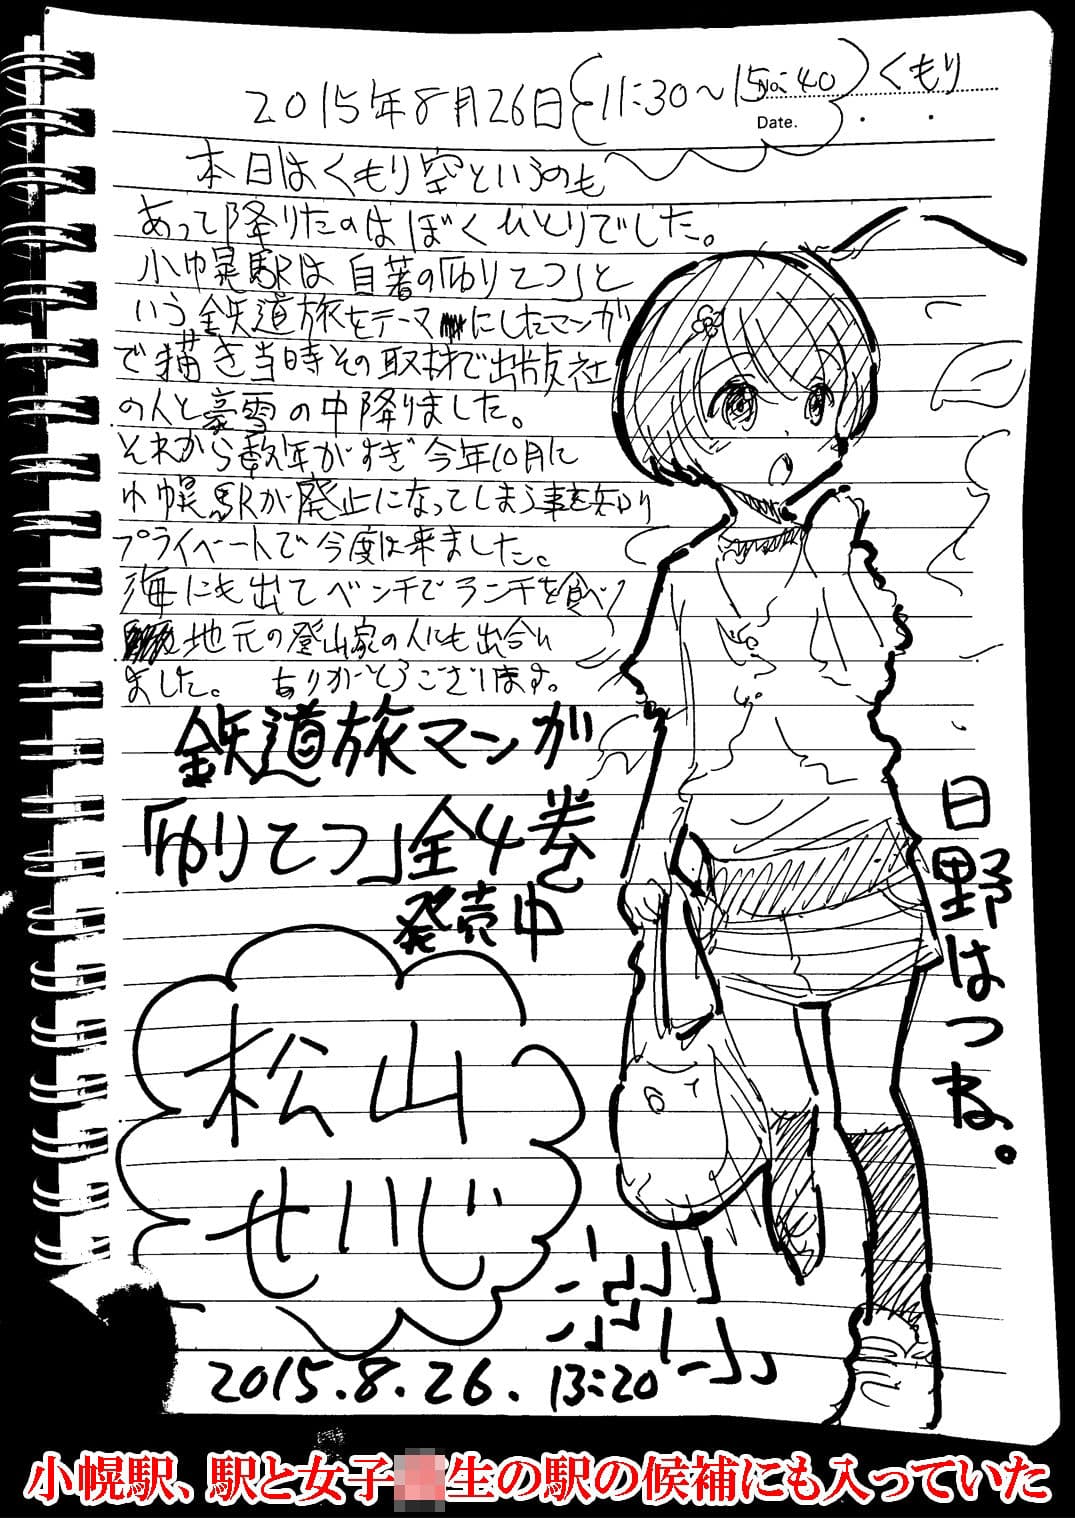 2015年8月26日 11:30～15:40 くもり
No.
Date.
本日はくもり空というのも
あって降りたのはぼくひとりでした。
小幌駅は自著の「ゆりてつ」と
いう鉄道旅をテーマにしたマンガ
で描き当時その取材で出版社
の人と豪雪の中降りました。
それから数年がすぎ今年10月に
小幌駅が廃止になってしまう事を知り
プライベートで今度は来ました。
海にも出てベンチでランチを食べ
地元の登山家の人にも出合い
ました。 ありがとうございます。
鉄道旅マンガ
「ゆりてつ」全4巻
発売中
日野はつね。
松山
せいじ
2015.8.26. 13:20
小幌駅、駅と女子 生の駅の候補にも入っていた